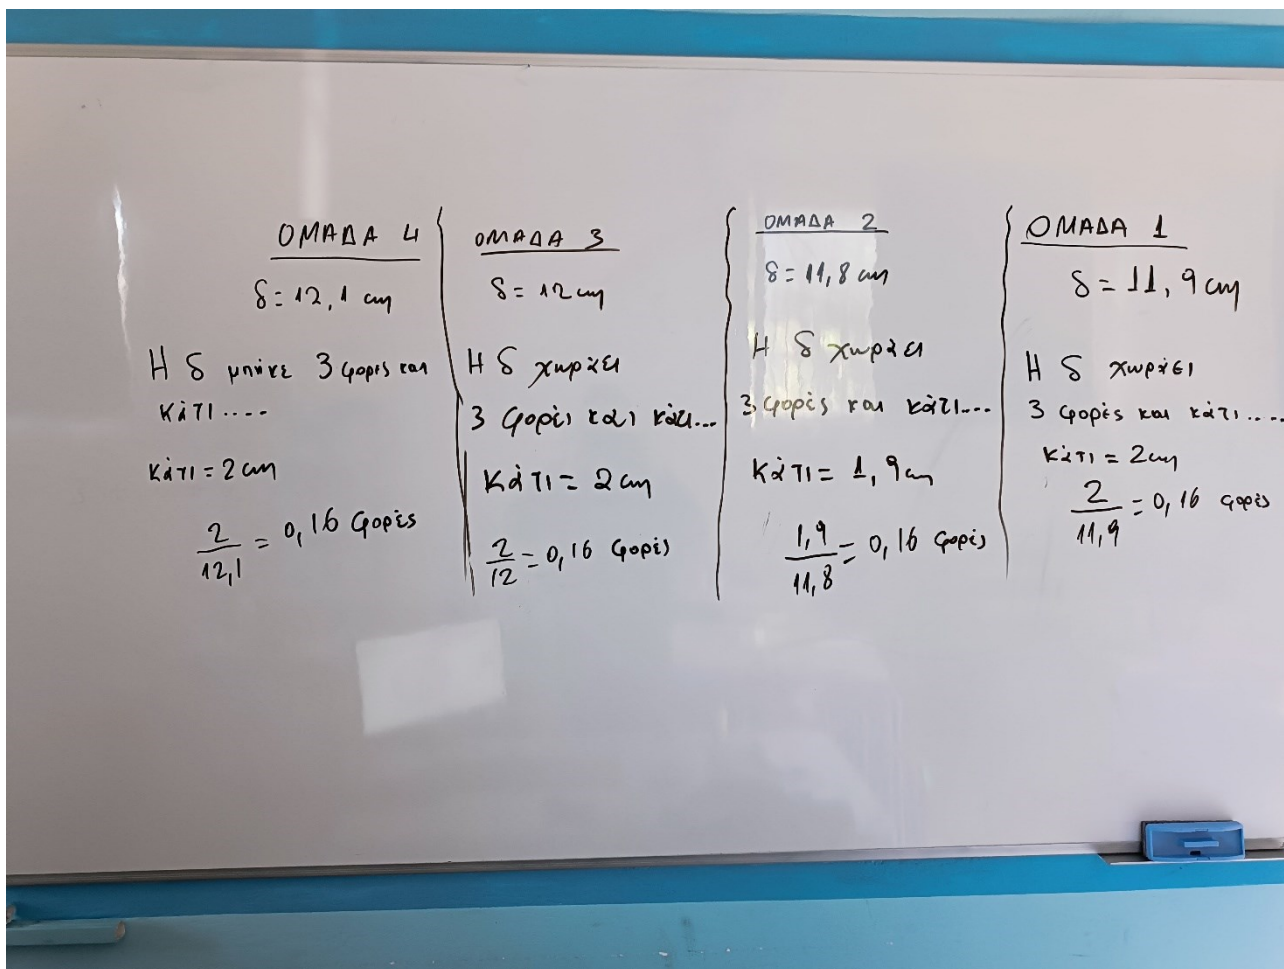 ΟΜΑΔΑ 4
δ = 12,1 cm
Η δ μπήκε 3 φορές και
κάτι....
κάτι = 2 cm
2/12,1 = 0,16 φορές
ΟΜΑΔΑ 3
δ = 12 cm
Η δ χωράει
3 φορές και κάτι...
κάτι = 2 cm
2/12 = 0,16 φορές
ΟΜΑΔΑ 2
δ = 11,8 cm
Η δ χωράει
3 φορές και κάτι...
κάτι = 1,9 cm
1,9/11,8 = 0,16 φορές
ΟΜΑΔΑ 1
δ = 11,9 cm
Η δ χωράει
3 φορές και κάτι....
κάτι = 2 cm
2/11,9 = 0,16 φορές